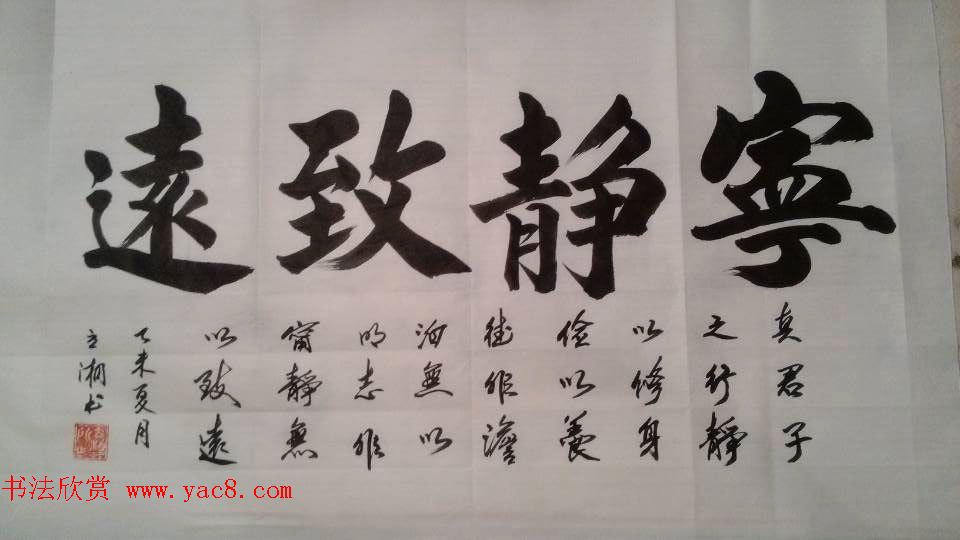 寧靜致遠
真君子
之行靜
以修身
儉以養
德非澹
泊無以
明志非
甯靜無
以致遠
乙未夏月
立湘书
书法欣赏 www.yac8.com